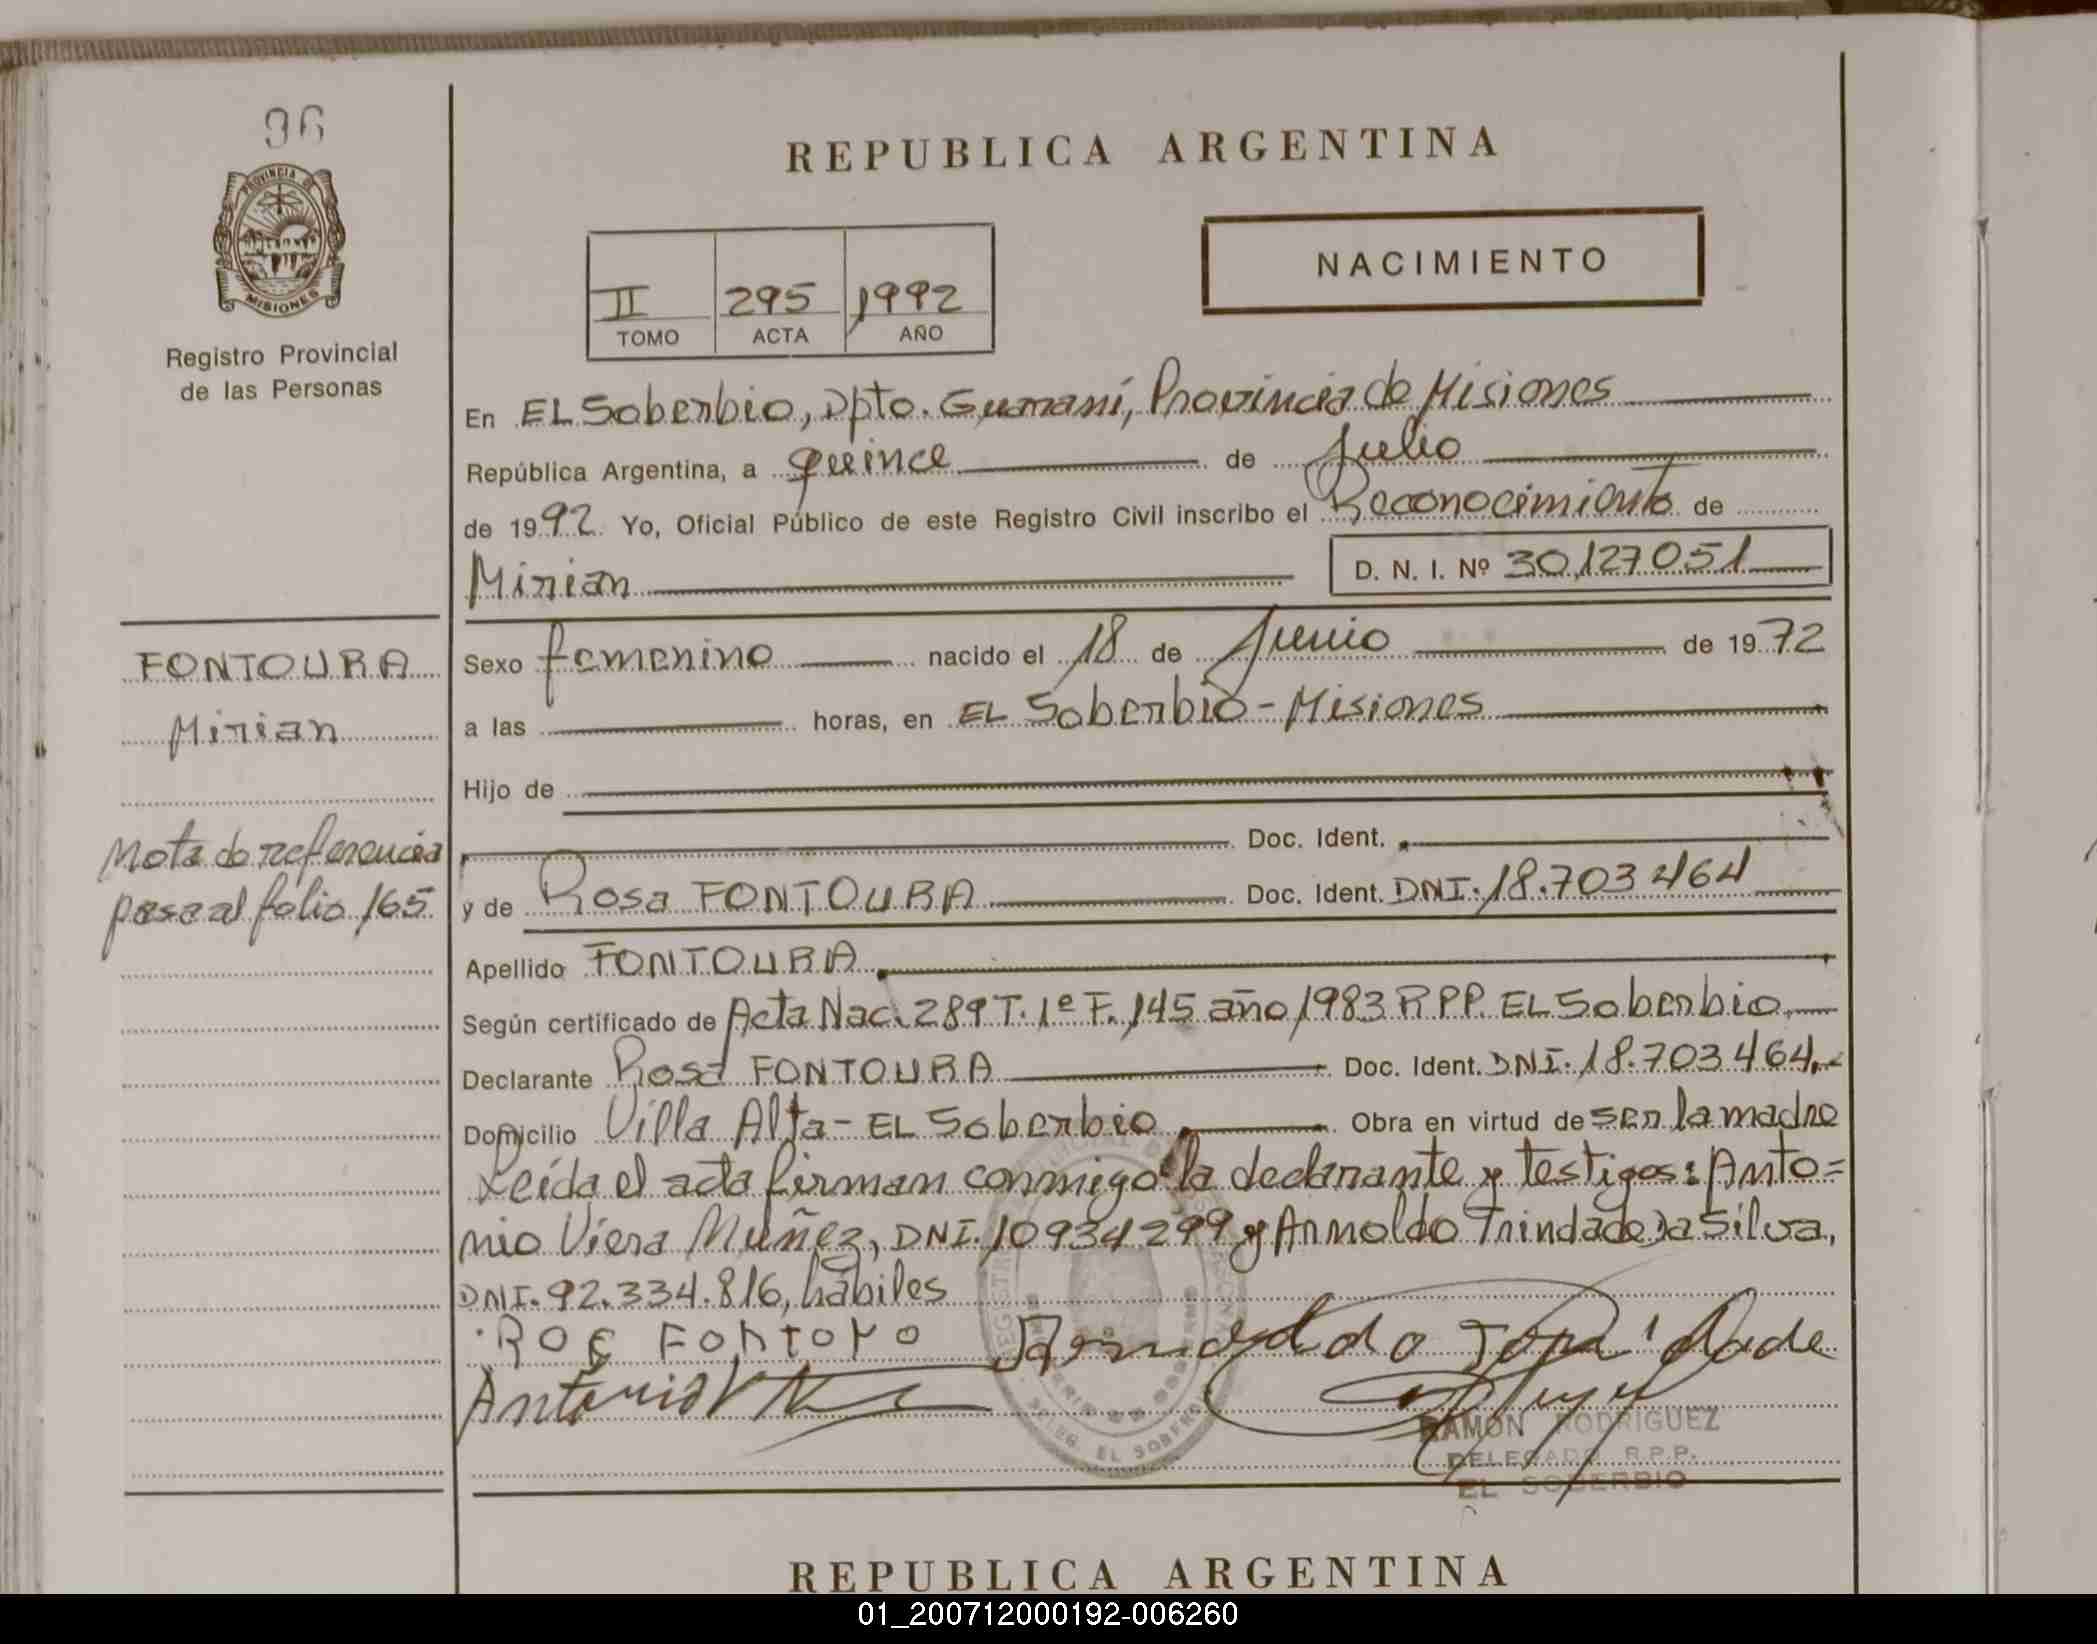 96
PROVINCIA DE
MISIONES
Registro Provincial
de las Personas
REPUBLICA ARGENTINA
II 295 1992
TOMO ACTA AÑO
NACIMIENTO
En EL Soberbio, Dpto. Guaraní, Provincia de Misiones
República Argentina, a quince de Julio
de 1992. Yo, Oficial Público de este Registro Civil inscribo el Reconocimiento de
Mirian D. N. I. Nº 30,127051
FONTOURA
Mirian
Nota de referencia
pasa al folio 165.
Sexo femenino nacido el 18 de Junio de 1972
a las horas, en EL Soberbio - Misiones
Hijo de
Doc. Ident.
y de Rosa FONTOURA Doc. Ident. DNI. 18.703464
Apellido FONTOURA
Según certificado de Acta Nac. 289 T. 1º F. 145 año 1983 R P.P. EL Soberbio.
Declarante Rosa FONTOURA Doc. Ident. DNI. 18.703464.
Domicilio Villa Alta - EL Soberbio Obra en virtud de ser la madre
Leída el acta firman conmigo la declarante y testigos: Anto=
nio Viera Muñez, DNI. 10934299 y Arnoldo Trindade Da Silva,
DNI. 92.334.816, hábiles
Antonio
RAMON RODRIGUEZ
DELEGADO R.P.P.
EL SOBERBIO
REPUBLICA ARGENTINA
01_200712000192-006260